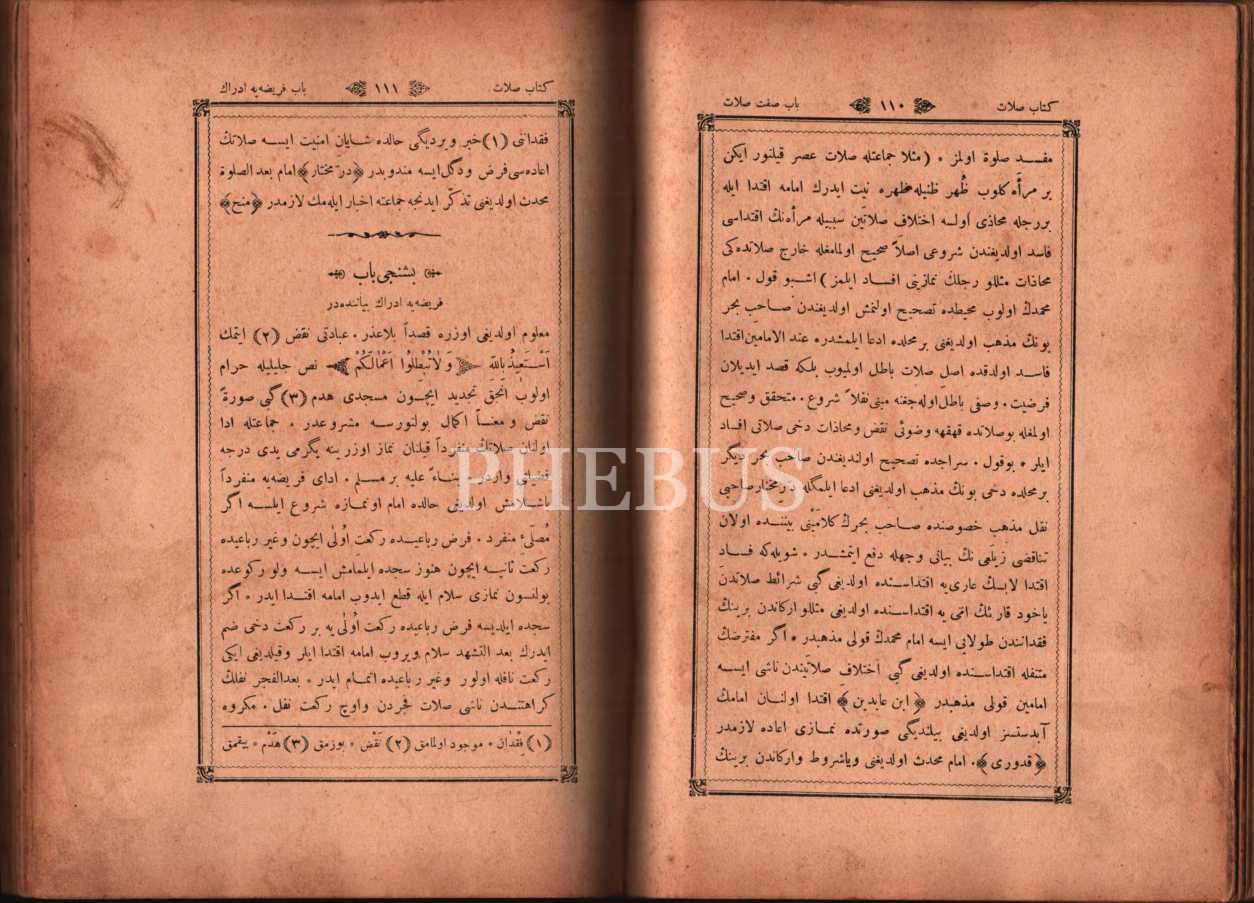 كتاب صلات ١١٠ باب صفت صلات
مفسد صلوة اولمز • (مثلا جماعتله صلات عصر قيلنور ايكن
بر مرأه كلوب ظُهر ظنيله مظهره نيت ايدرك امامه اقتدا ايله
بررجله محاذى اولسه اختلاف صلاتين سببيله مرأه‌نك اقتداسى
فاسد اولديغندن شروعى اصلاً صحيح اولمامغله خارج صلاتده‌كى
محاذات مثللو رجلك نمازينى افساد ايلمز) اشبو قول • امام
محمدك اولوب محيطده تصحيح اولنمش اولديغندن صاحب بحر
بونك مذهب اولديغنى بر محلده ادعا ايلمشدر • عند الامامين اقتدا
فاسد اولدقده اصل صلات باطل اولميوب بلكه قصد ايديلان
فرضيت • وصفى باطل اوله‌جغنه مبنى نفلاً شروع • متحقق وصحيح
اولمغله بوصلاتده قهقهه وضوئى نقض ومحاذات دخى صلاتى افساد
ايلر • بوقول • سراجده تصحيح اولنديغندن صاحب بحر ديگر
بر محلده دخى بونك مذهب اولديغنى ادعا ايلمگله درمختار صاحبى
نقل مذهب خصوصنده صاحب بحرك كلامَيْنى بيننده اولان
تناقضى زيلعى نك بيانى وجهله دفع ايتمشدر • شويله‌كه فساد
اقتدا لابسك عارى‌يه اقتداسنده اولديغى گبى شرائط صلاتدن
ياخود قارئك امى يه اقتداسنده اولديغى مثللو اركاندن برينك
فقدانندن طولايى ايسه امام محمدك قولى مذهبدر • اگر مفترضك
متنفله اقتداسنده اولديغى گبى اختلاف صلاتيندن ناشى ايسه
امامين قولى مذهبدر ﴿ابن عابدين﴾ اقتدا اولنان امامك
آبدستسز اولديغى بيلنديگى صورتده نمازى اعاده لازمدر
﴿قدورى﴾ • امام محدث اولديغنى وياشروط واركاندن برينك
كتاب صلات ١١١ باب فريضه‌يه ادراك
فقداننى (١) خبر ويرديگى حالده شايان امنيت ايسه صلاتك
اعاده‌سى فرض ودگل ايسه مندوبدر ﴿در مختار﴾ امام بعد الصلوة
محدث اولديغنى تذكّر ايدنجه جماعته اخبار ايله‌مك لازمدر ﴿منح﴾
بشنجى باب
فريضه‌يه ادراك بياننده‌در
معلوم اولديغى اوزره قصداً بلاعذر • عبادتى نقض (٢) ايتمك
اَسْتَعِيذُ بِاللّٰهِ ﴿وَلَا تُبْطِلُوا اَعْمَالَكُمْ﴾ نص جليليله حرام
اولوب انجق تجديد ايچون مسجدى هدم (٣) گبى صورةً
نقض ومعنىً اكمال بولنورسه مشروعدر • جماعتله ادا
اولنان صلاتك منفرداً قيلنان نماز اوزرينه يگرمى يدى درجه
فضلى واردر • بناءً عليه بر مسلم • اداى فريضه‌يه منفرداً
باشلامش اولديغى حالده امام اونمازه شروع ايلسه اگر
مُصلّىء منفرد • فرض رباعيده ركعتِ اُولٰى ايچون وغير رباعيده
ركعت ثانيه ايچون هنوز سجده ايلمامش ايسه ولو ركوعده
بولنسون نمازى سلام ايله قطع ايدوب امامه اقتدا ايدر • اگر
سجده ايلديسه فرض رباعيده ركعت اُولٰى‌يه بر ركعت دخى ضم
ايدرك بعد التشهد سلام ويروب امامه اقتدا ايلر وقيلديغى ايكى
ركعت نافله اولور وغير رباعيده اتمام ايدر • بعدالفجر نفلك
كراهتندن ناشى صلات فجردن واوچ ركعت نفل • مكروه
(١) فِقْدَان • موجود اولمامق (٢) نَقْض • بوزمق (٣) هَدْم • ييقمق
PHEBUS